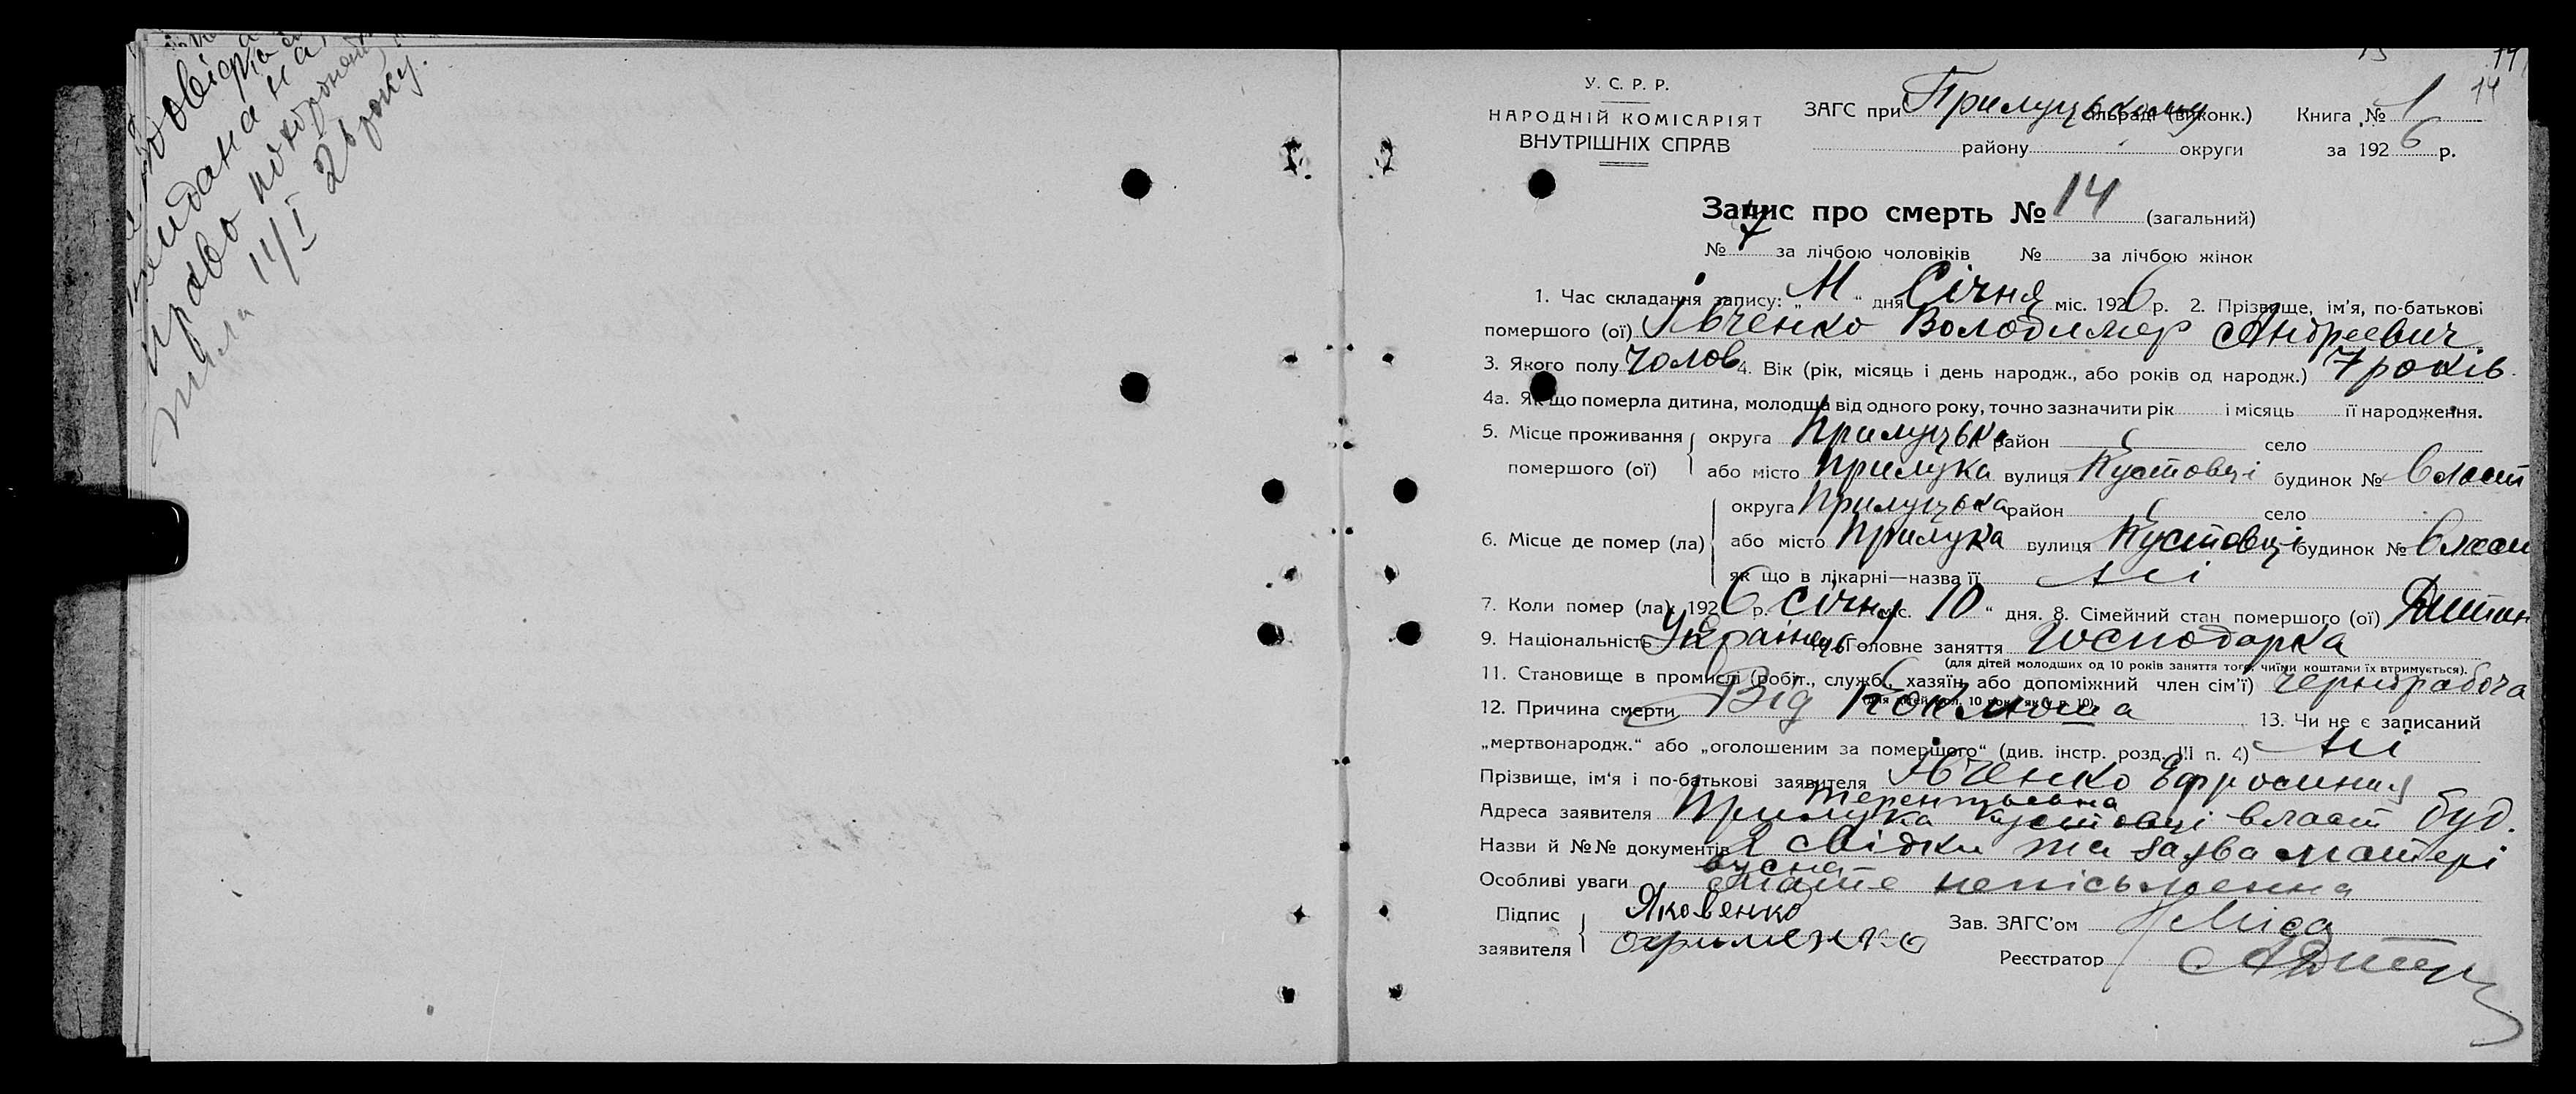 довідка
видана на
право похорону
тіла 11/I 26 року.
14
14
У. С. Р. Р.
НАРОДНІЙ КОМІСАРІЯТ
ВНУТРІШНІХ СПРАВ
ЗАГС при Прилуцькому сільраді (виконк.)
району округи
Книга № 1
за 1926 р.
Запис про смерть № 14 (загальний)
№ 7 за лічбою чоловіків № за лічбою жінок
1. Час складання запису: „ 11 “ дня Січня міс. 1926 р. 2. Прізвище, ім'я, по-батькові
помершого (ої) Івченко Володимер Андреевич
3. Якого полу чолов 4. Вік (рік, місяць і день народж., або років од народж.) 7 років
4а. Як що померла дитина, молодша від одного року, точно зазначити рік і місяць її народження.
5. Місце проживання помершого (ої) округа Прилуцька район село
або місто Прилука вулиця Кустовці будинок № власт
6. Місце де помер (ла) округа Прилуцька район село
або місто Прилука вулиця Кустовці будинок № власн
як що в лікарні—назва її ні
7. Коли помер (ла): 1926 р. Січня міс. 10 “ дня. 8. Сімейний стан помершого (ої) Дитин
9. Національність Українець 10. Головне заняття Господарка
(для дітей молодших од 10 років заняття того, чиїми коштами їх втримується).
11. Становище в промислі (робіт., служб., хазяїн або допоміжний член сім'ї) чернорабоча
(для дітей мол. 10 років як у п. 10)
12. Причина смерти Від Коклюша 13. Чи не є записаний
„мертвонародж.“ або „оголошеним за померішого“ (див. інстр. розд. III п. 4) ні
Прізвище, ім'я і по-батькові заявителя Івченко Ефросиния
Терентьевна
Адреса заявителя Прилука Кустовці власт буд.
Назви й №№ документів 2 свідки та заява матері
вусна
Особливі уваги Мати непісьменна
Підпис заявителя Яковенко
Охрименко
Зав. ЗАГС'ом
Реєстратор